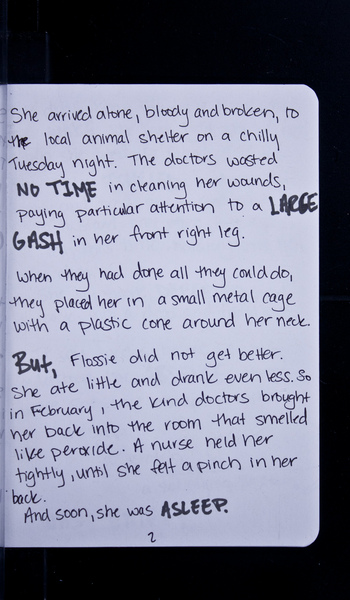 She arrived alone, bloody and broken, to
the local animal shelter on a chilly
Tuesday night. The doctors wasted
NO TIME in cleaning her wounds,
paying particular attention to a LARGE
GASH in her front right leg.
When they had done all they could do,
they placed her in a small metal cage
with a plastic cone around her neck.
But, Flossie did not get better.
She ate little and drank even less. So
in February, the kind doctors brought
her back into the room that smelled
like peroxide. A nurse held her
tightly, until she felt a pinch in her
back.
And soon, she was ASLEEP.
2